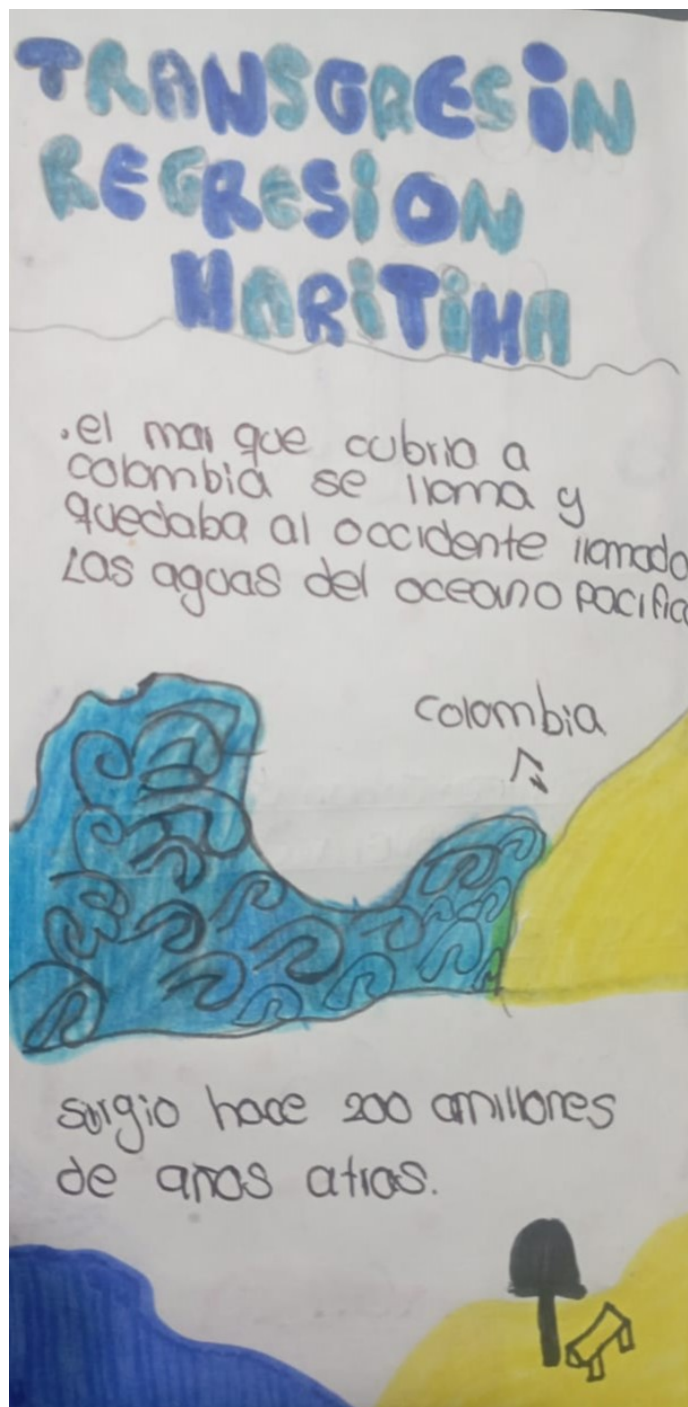 TRANSGRESIN
REGRESION
MARITIMA
.el mar que cubrio a
colombia se llama y
quedaba al occidente llamado
Las aguas del oceano pacifico
colombia
surgio hace 200 millones
de años atras.